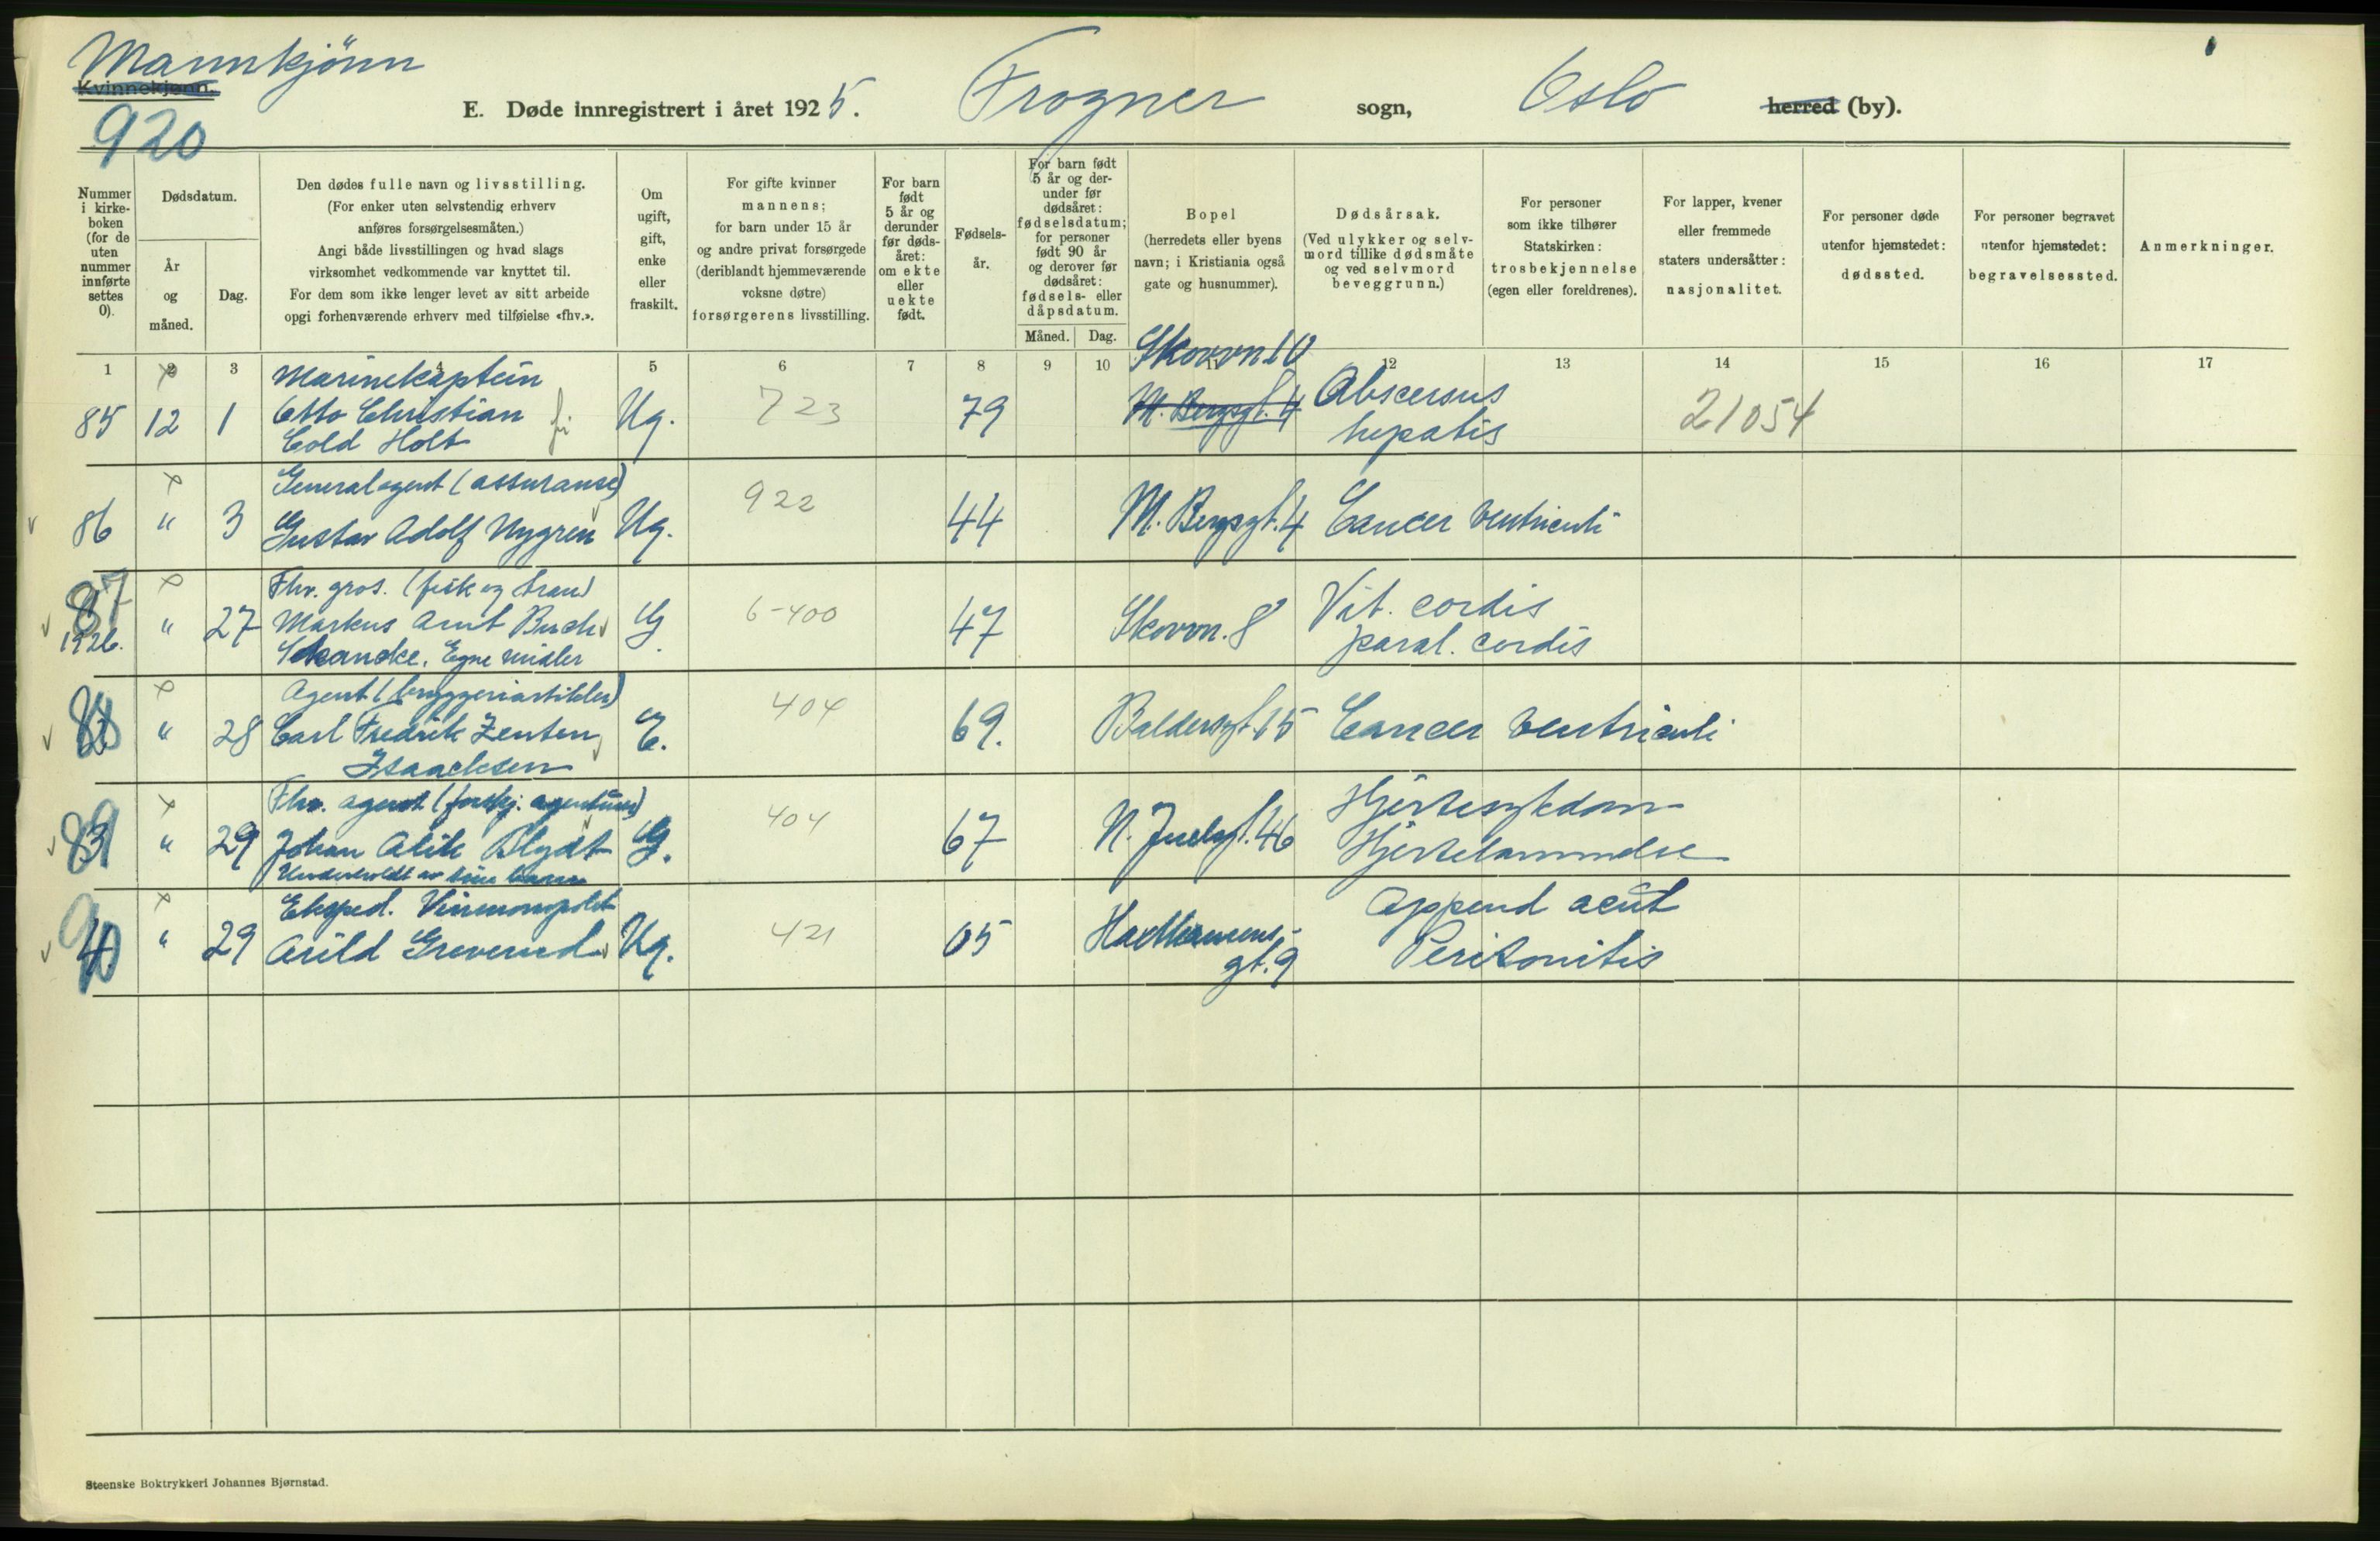 Mannkjönn
Kvinnekjønn.
920
E. Døde innregistrert i året 1925. Frogner sogn, Oslo herred (by).
Nummer i kirkeboken (for de uten nummer innførte settes 0).
Dødsdatum.
År og måned.
Dag.
Den dødes fulle navn og livsstilling.
(For enker uten selvstendig erhverv
anføres forsørgelsesmåten.)
Angi både livsstillingen og hvad slags
virksomhet vedkommende var knyttet til.
For dem som ikke lenger levet av sitt arbeide
opgi forhenværende erhverv med tilføielse «fhv.».
Om
ugift,
gift,
enke
eller
fraskilt.
For gifte kvinner
mannens;
for barn under 15 år
og andre privat forsørgede
(deriblandt hjemmeværende
voksne døtre)
forsørgerens livsstilling.
For barn
født
5 år og
derunder
før døds-
året:
om ekte
eller
uekte
født.
Fødsels-
år.
For barn født
5 år og der-
under før
dødsåret:
fødselsdatum;
for personer
født 90 år
og derover før
dødsåret:
fødsels- eller
dåpsdatum.
Måned. Dag.
Bopel
(herredets eller byens
navn; i Kristiania også
gate og husnummer).
Dødsårsak.
(Ved ulykker og selv-
mord tillike dødsmåte
og ved selvmord
beveggrunn.)
For personer
som ikke tilhører
Statskirken:
trosbekjennelse
(egen eller foreldrenes).
For lapper, kvener
eller fremmede
staters undersåtter:
nasjonalitet.
For personer døde
utenfor hjemstedet:
dødssted.
For personer begravet
utenfor hjemstedet:
begravelsessted.
Anmerkninger.
1 2 3 4 5 6 7 8 9 10 11 12 13 14 15 16 17
Marinekaptein Skovvn. 10
85 12 1 Otto Christian Ug. 723 79 M. Bergsgt. 4 Abscersus 21054
Cold Holt hepatis
Generalagent (assuranse)
86 " 3 Gustav Adolf Nygren Ug. 922 44 M. Bergsgt. 4 Cancer ventriculi
Fhv. gros. (fisk og tran)
87 " 27 Markus Arnt Buch G. 6-400 47 Skovvn. 8 Vit. cordis
1926. Schanche. Egne midler paral. cordis
Agent (bryggeriartikler)
88 " 28 Carl Fredrik Zenten E. 404 69. Baldersgt. 15 Cancer ventriculi
Isaachsen
Fhv. agent (forskj. agenturer)
89 " 29 Johan Alik Blydt G. 404 67 N. Juelsgt. 46 Hjertesykdom
Underholdt av sine barn Hjertelammelse
Eksped. Vinmonopolet
90 " 29 Arild Greverud Ug. 421 05 Append acut
gt. 9 Peritonitis
Steenske Boktrykkeri Johannes Bjørnstad.